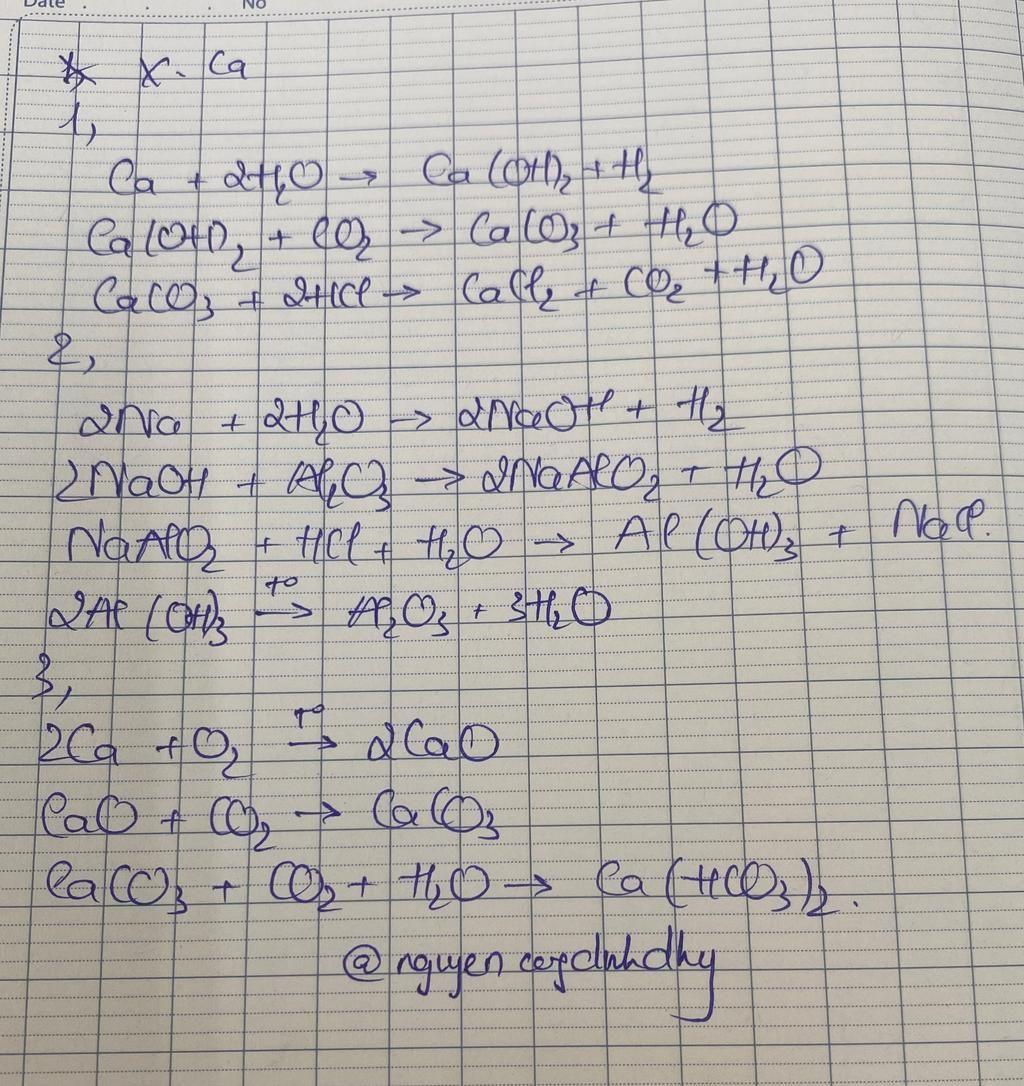 Date . . . No
* X. Ca
1,
Ca + 2H₂O → Ca(OH)₂ + H₂
Ca(OH)₂ + CO₂ → CaCO₃ + H₂O
CaCO₃ + 2HCl → CaCl₂ + CO₂ + H₂O
2,
2Na + 2H₂O → 2NaOH + H₂
2NaOH + Al₂O₃ → 2NaAlO₂ + H₂O
NaAlO₂ + HCl + H₂O → Al(OH)₃ + NaCl.
2Al(OH)₃ →(t°) Al₂O₃ + 3H₂O
3,
2Ca + O₂ →(t°) 2CaO
CaO + CO₂ → CaCO₃
CaCO₃ + CO₂ + H₂O → Ca(HCO₃)₂.
@nguyen